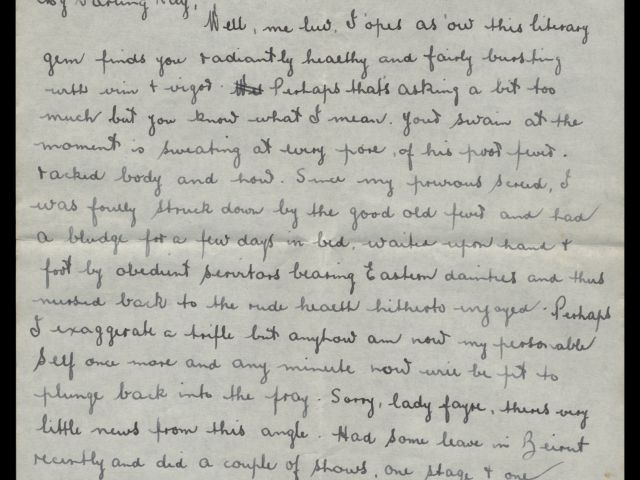 My Darling Kay,
Well, me luv, I 'opes as 'ow this literary
gem finds you radiantly healthy and fairly bursting
with vim & vigor. Perhaps that's asking a bit too
much but you know what I mean. Your swain at the
moment is sweating at every pore, of his poor fever.
racked body and how. Since my previous screed, I
was foully struck down by the good old fever and had
a bludge for a few days in bed, waited upon hand &
foot by obedient servitors bearing Eastern dainties and thus
nursed back to the rude health hitherto enjoyed. Perhaps
I exaggerate a trifle but anyhow am now my personable
self once more and any minute now will be fit to
plunge back into the fray. Sorry, lady fayre, theres very
little news from this angle. Had some leave in Beirut
recently and did a couple of shows, one stage & one